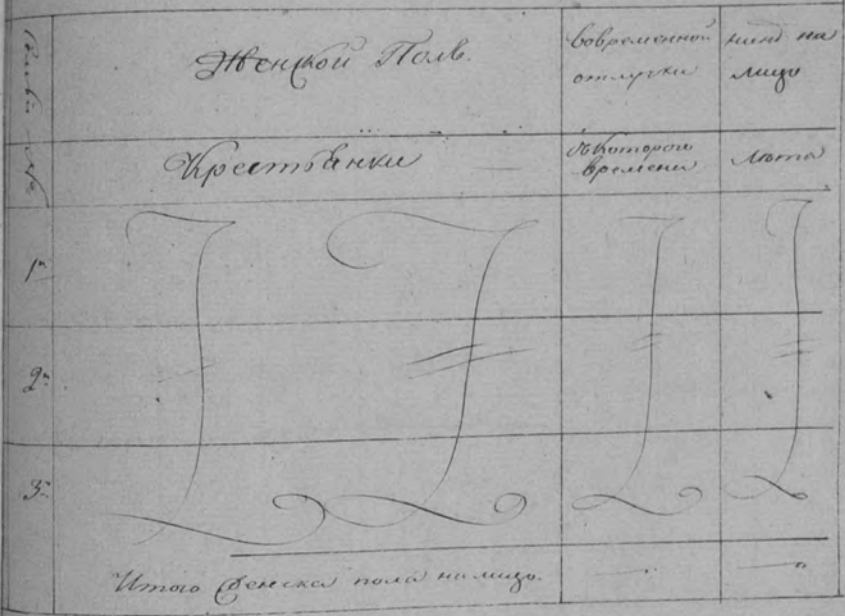 Женской Полъ.
вовременной
отлучки
нынѣ на
лицо
Крестьянки
съ Которого
времени
Лѣта
1.
2.
3.
Итого Женска пола налицо.